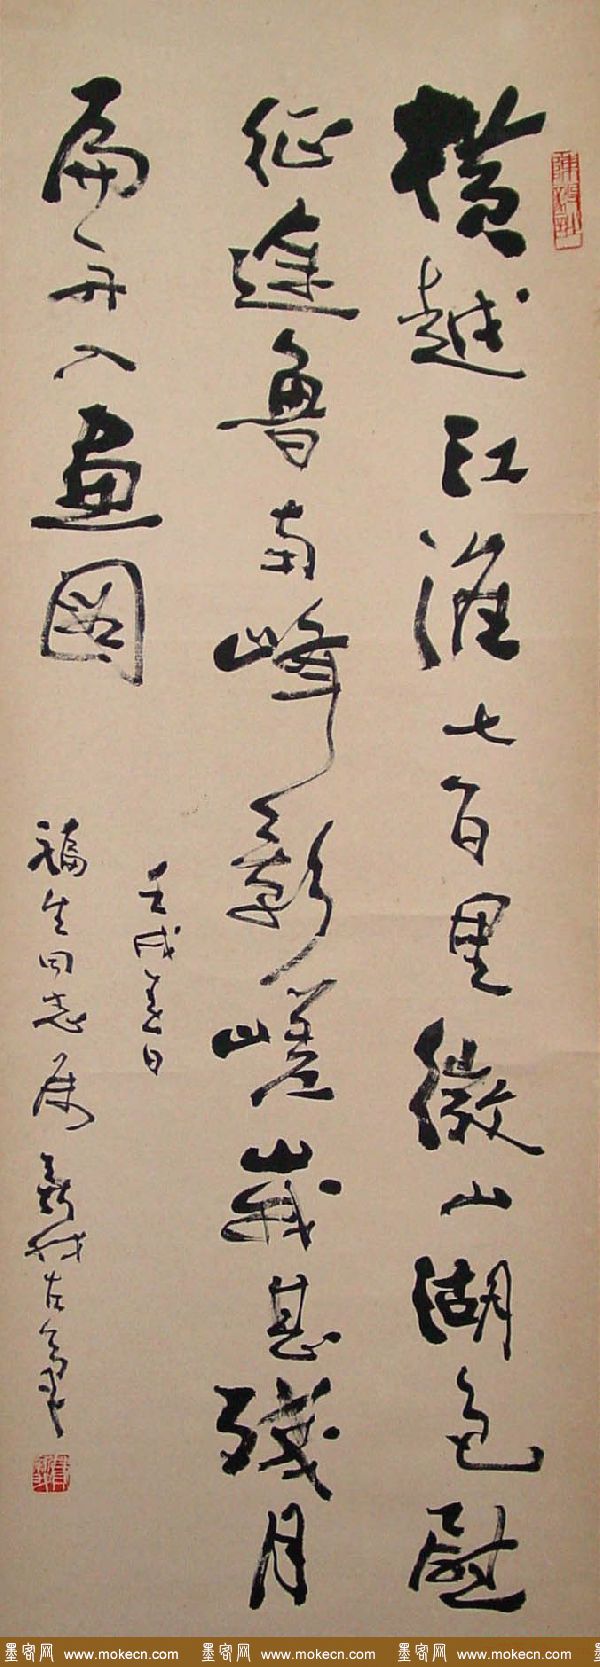 橫越江淮七百里微山湖色慰
征途魯南峰影嵯峨甚殘月
扁舟入畫圖
壬戌春日
福生同志属 新我左筆
墨客网 www.mokecn.com 墨客网 www.mokecn.com 墨客网 www.mokecn.com